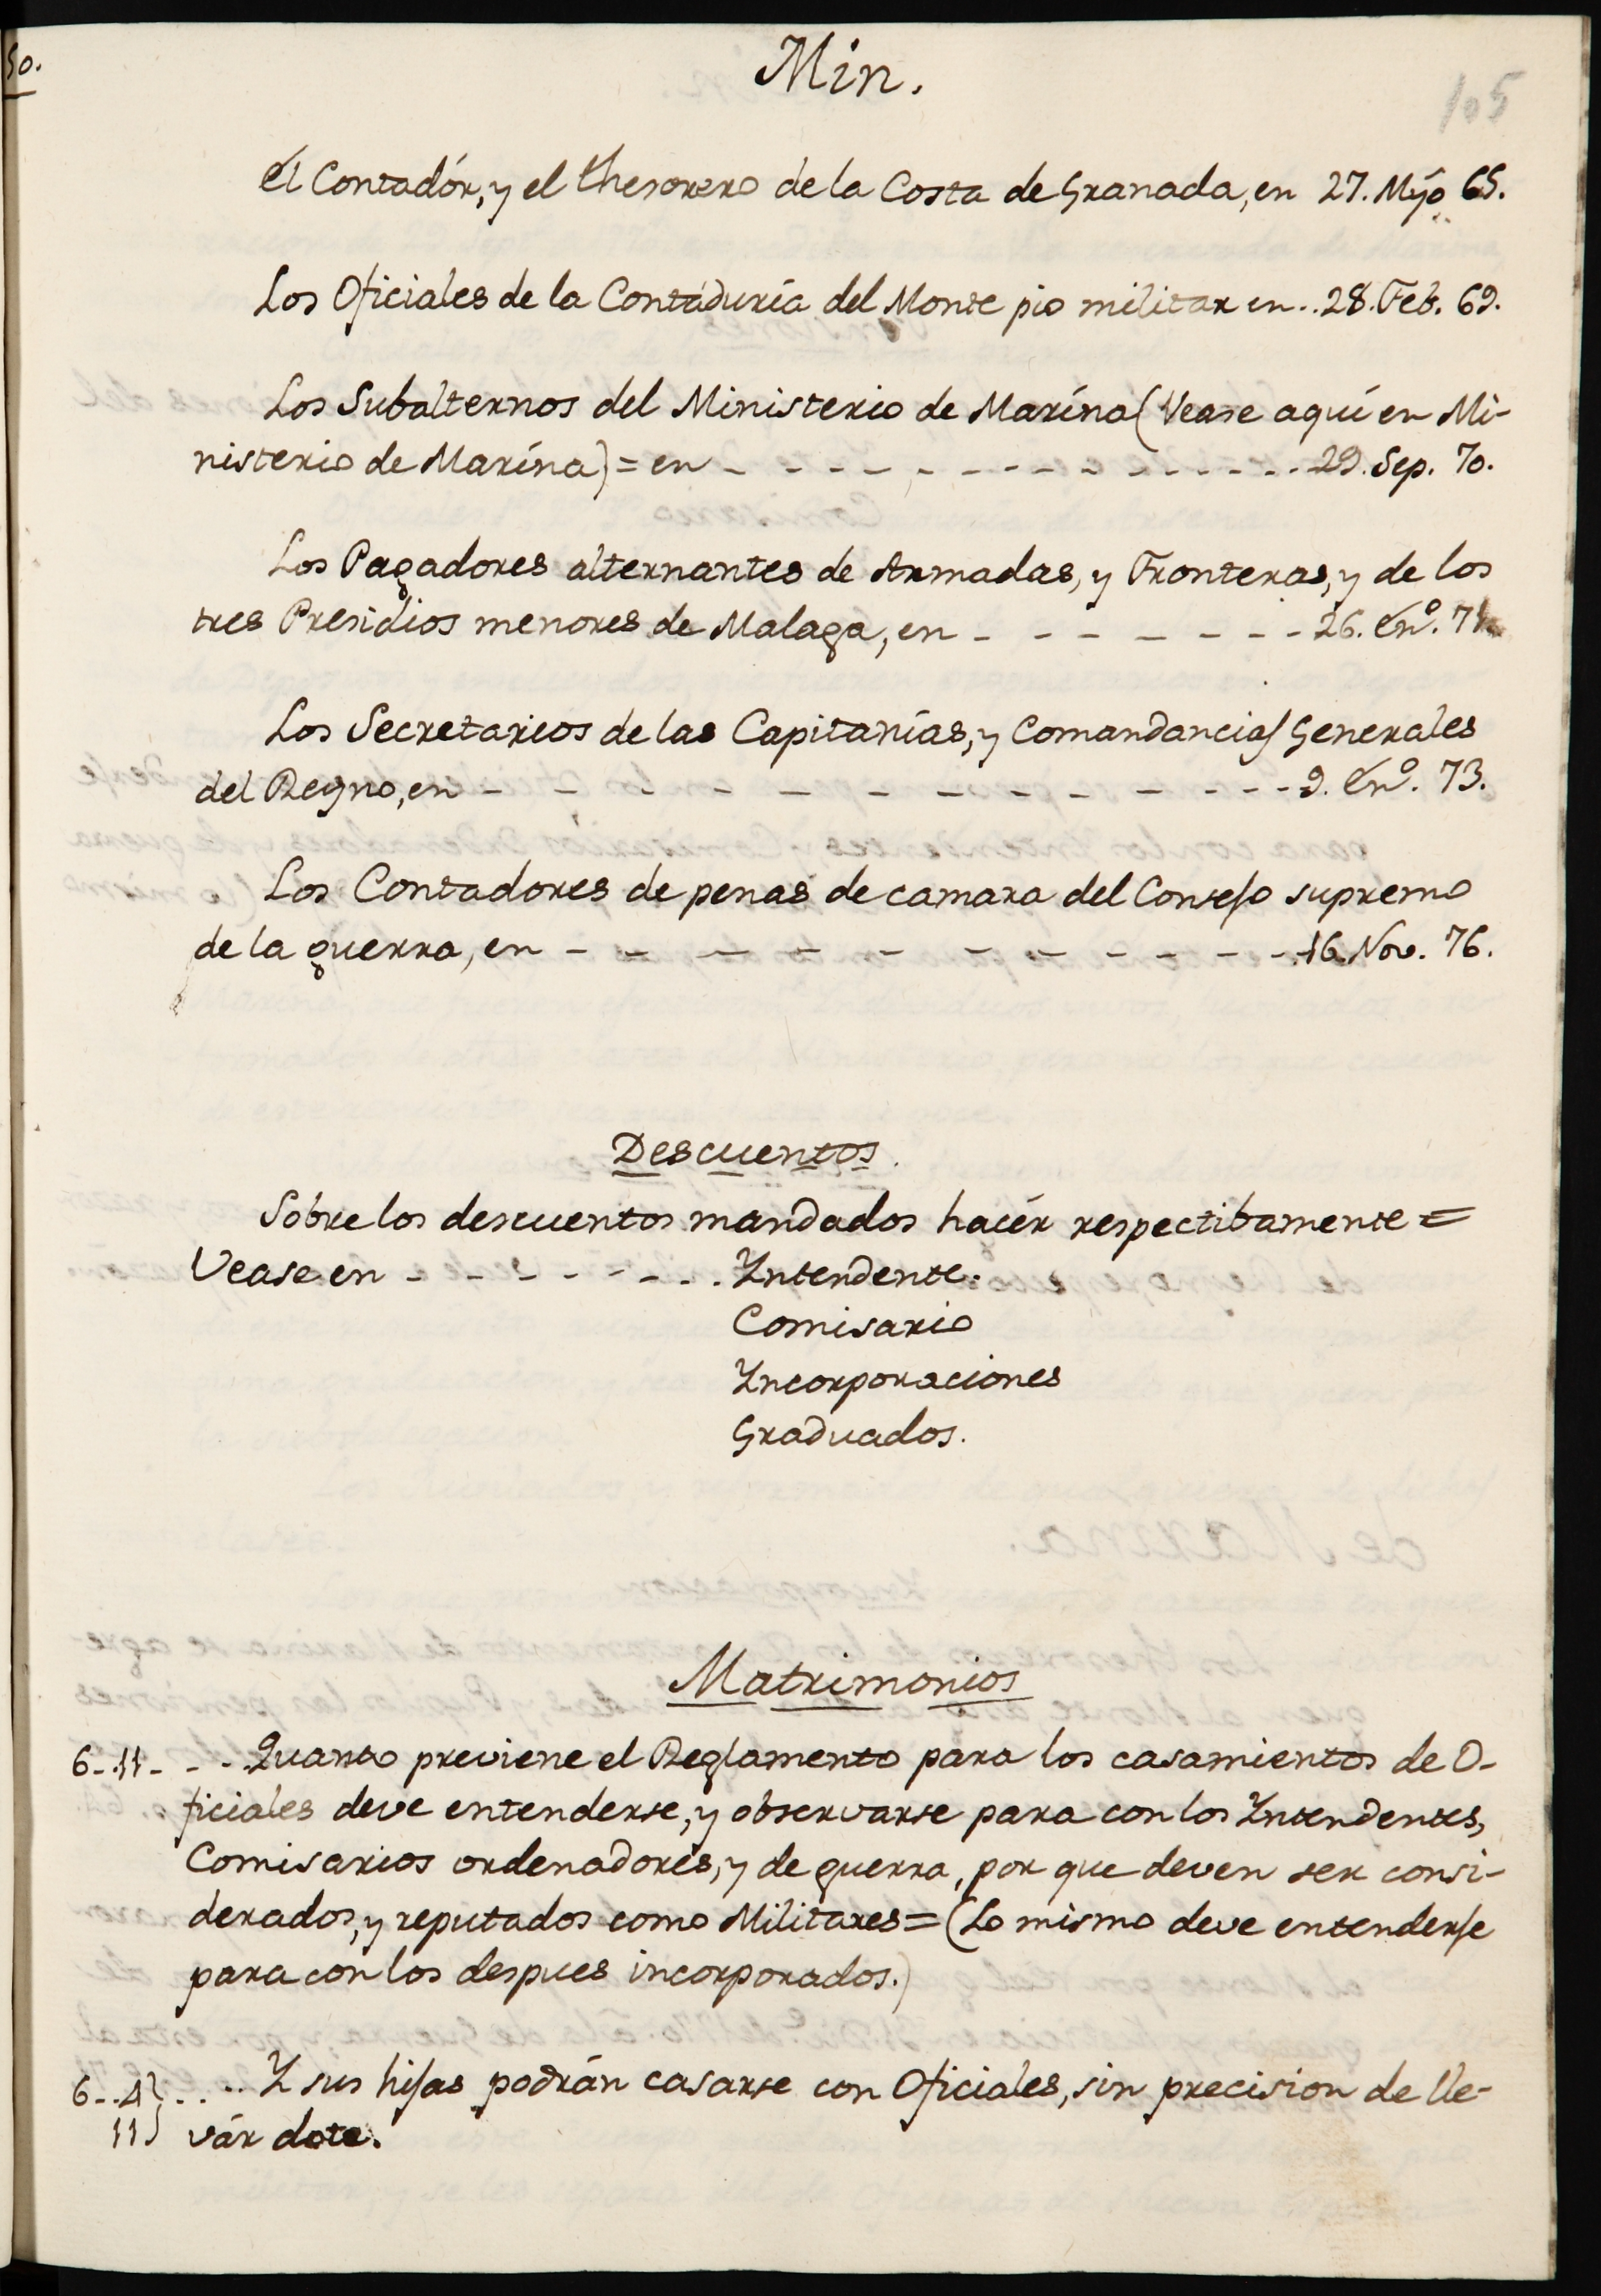 Min.
105
El Contadór, y el thesorero de la Costa de Granada, en 27. Myo 65.
Los Oficiales de la Contaduría del Monte pio militar en .. 28. Feb. 69.
Los Subalternos del Ministerio de Marína (Vease aquí en Mi-
nisterio de Marína) = en - - - - - - - - - - - - - - - 29. Sep. 70.
Los Pagadores alternantes de Armadas, y Fronteras, y de los
tres Presidios menores de Malaga, en - - - - - - - - 26. En.º 71
Los Secretarios de las Capitanías, y Comandancias Generales
del Reyno, en - - - - - - - - - - - - - - - 9. En.º 73.
Los Contadores de penas de camara del Consejo supremo
de la guerra, en - - - - - - - - - - - - - 16. Nov. 76.
Descuentos.
Sobre los descuentos mandados hacér respectibamente =
Vease en - - - - - - - - . Yntendente.
Comisario
Yncorporaciones
Graduados.
Matrimonios
6 - .11 - - - . Quanto previene el Reglamento para los casamientos de O-
ficiales deve entenderse, y observarse para con los Yntendentes,
Comisarios ordenadores, y de guerra, por que deven ser consi-
derados, y reputados como Militares = (Lo mismo deve entenderse
para con los despues incorporados.)
6 - .4} . . - .. Y sus hijas podrán casarse con Oficiales, sin precision de lle-
11} vár dote.